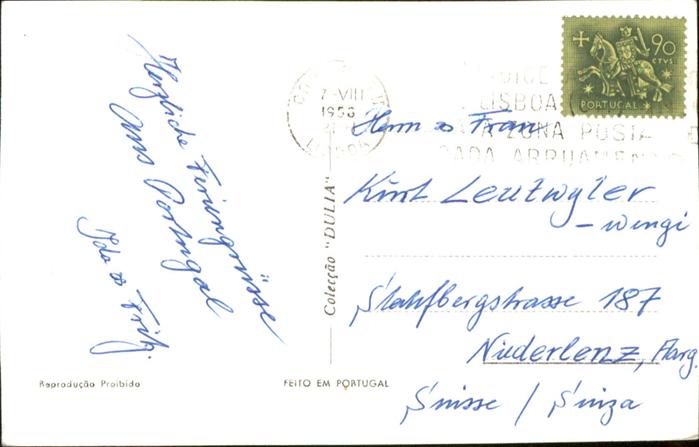 Herzliche Feriengrüsse
aus Portugal
Ida & Fritz.
Reprodução Proibida
Colecção "DULIA"
FEITO EM PORTUGAL
7-VIII
1958
LISBOA
ZONA POSTAL
CADA ARRUAMENTO
90
CTVS.
PORTUGAL
Herrn & Frau
Kurt Leutwyler
-wengi
Stahfbergstrasse 187
Niederlenz, Aarg.
Suisse / Suiza